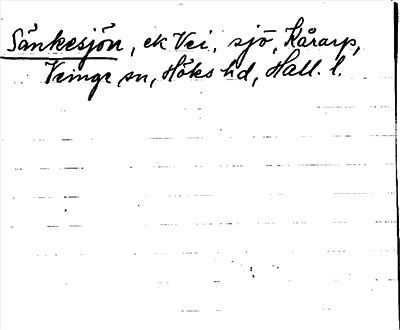 Sänkesjön, ek Vei, sjö, Kårarp,
Veinge sn, Höks hd, Hall. l.